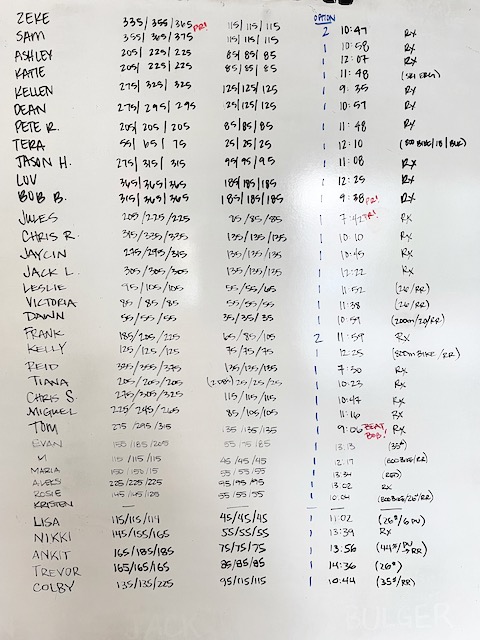 OPTION
ZEKE 335/355/365 PR! 115/115/115 2 10:47 RX
SAM 355/365/375 115/115/115 1 10:58 RX
ASHLEY 205/225/225 85/85/85 1 12:07 RX
KATIE 205/225/225 85/85/85 1 11:48
KELLEN 275/325/325 125/125/125 1 9:35 RX
DEAN 275/295/295 125/125/125 1 10:57 RX
PETE R. 205/205/205 85/85/85 1 11:48 RX
TERA 55/65/75 25/25/25 1 12:10
JASON H. 275/315/315 95/95/95 1 11:08 RX
LUV 365/365/365 185/185/185 1 12:25 RX
BOB B. 315/365/365 185/185/185 1 9:38 PR! RX
JULES 205/225/225 85/85/85 1 7:42 PR! RX
CHRIS R. 315/335/335 135/135/135 1 10:10 RX
JAYCIN 275/295/315 135/135/135 1 10:45 RX
JACK L. 305/305/305 135/135/135 1 12:22 RX
LESLIE 95/105/105 55/55/65 1 11:52 (26/RR)
VICTORIA 85/85/85 55/55/55 1 11:38 (26/RR)
DAWN 55/55/55 35/35/35 1 10:59 (200m/20/RR)
FRANK 185/205/225 65/85/105 2 11:59 RX
KELLY 125/125/125 75/75/75 1 12:25 (800m BIKE/RR)
REID 325/355/375 135/135/135 1 7:30 RX
TIANA 205/205/205 25/25/25 1 10:23 RX
CHRIS S. 275/305/325 115/115/115 1 10:47 RX
MIGUEL 225/245/265 85/105/105 1 11:16 RX
TOM 275/295/315 135/135/135 1 9:06 BEAT BOB! RX
EVAN 155/185/205 55/75/85 1 13:13 (35#)
115/115/115 45/45/45 1 12:17
MARIA 55/55/55 1 13:34
ALEKS 225/225/225 95/95/95 1 13:02 RX
ROSIE 145/145/125 55/55/55 1 10:04
KRISTEN — — — —
LISA 115/115/119 45/45/45 1 11:02
NIKKI 145/155/165 55/55/55 1 13:39 RX
ANKIT 165/185/185 75/75/75 1 13:56
TREVOR 165/165/165 85/85/85 1 14:36 (26#)
COLBY 135/135/225 95/115/115 1 10:44 (35#/RR)